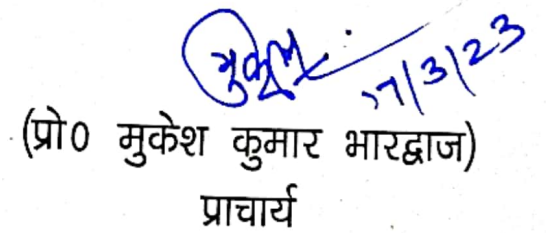 17/3/23
(प्रो0 मुकेश कुमार भारद्वाज)
प्राचार्य